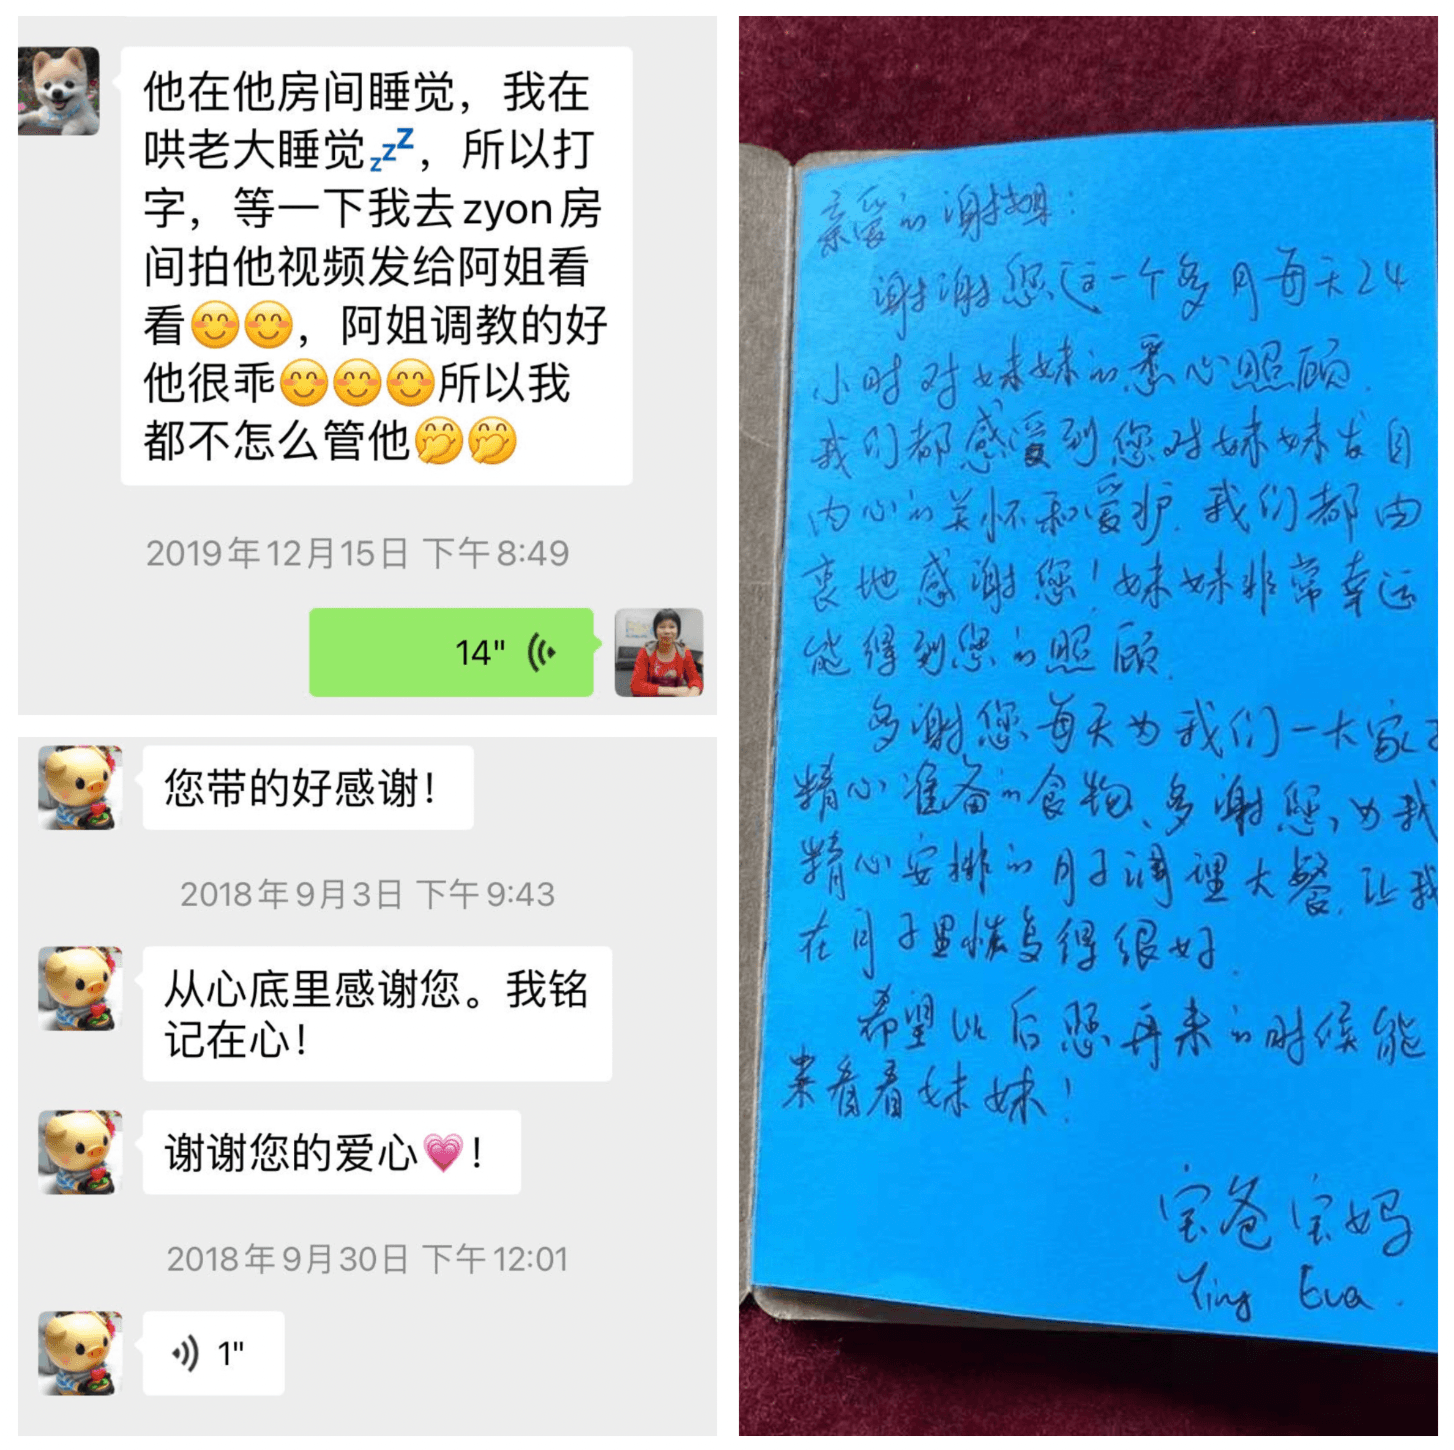 他在他房间睡觉，我在
哄老大睡觉💤，所以打
字，等一下我去zyon房
间拍他视频发给阿姐看
看😊😊，阿姐调教的好
他很乖😊😊😊所以我
都不怎么管他🤭🤭
2019年12月15日 下午8:49
14"
您带的好感谢！
2018年9月3日 下午9:43
从心底里感谢您。我铭
记在心！
谢谢您的爱心💗！
2018年9月30日 下午12:01
1"
亲爱的谢姐：
谢谢您这一个多月每天24
小时对妹妹的悉心照顾.
我们都感受到您对妹妹发自
内心的关怀和爱护.我们都由
衷地感谢您！妹妹非常幸运
能得到您的照顾.
多谢您每天为我们一大家子
精心准备的食物、多谢您为我
精心安排的月子调理大餐.让我
在月子里恢复得很好.
希望以后您再来的时候能
来看看妹妹！
宝爸宝妈
Ying Eva.